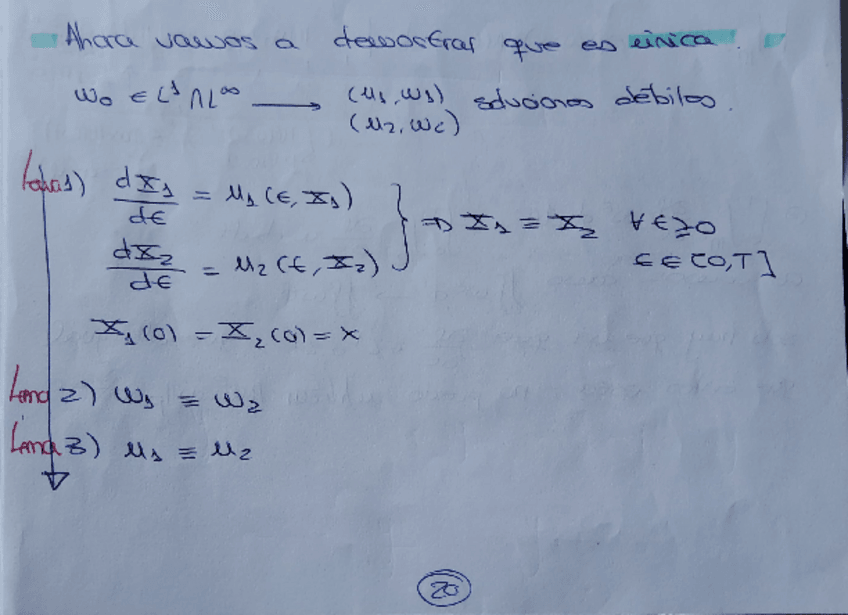 Ahora vamos a demostrar que es única.
ω₀ ∈ L¹ ∩ L^∞ ⟶ (u₁, ω₁) soluciones débiles.
(u₂, ω₂)
1) dX₁/dt = u₁(t, X₁)
dX₂/dt = u₂(t, X₂) } ⇒ X₁ ≡ X₂ ∀ t ≥ 0
t ∈ [0, T]
X₁(0) = X₂(0) = x
Lema 2) ω₁ ≡ ω₂
Lema 3) u₁ ≡ u₂
20